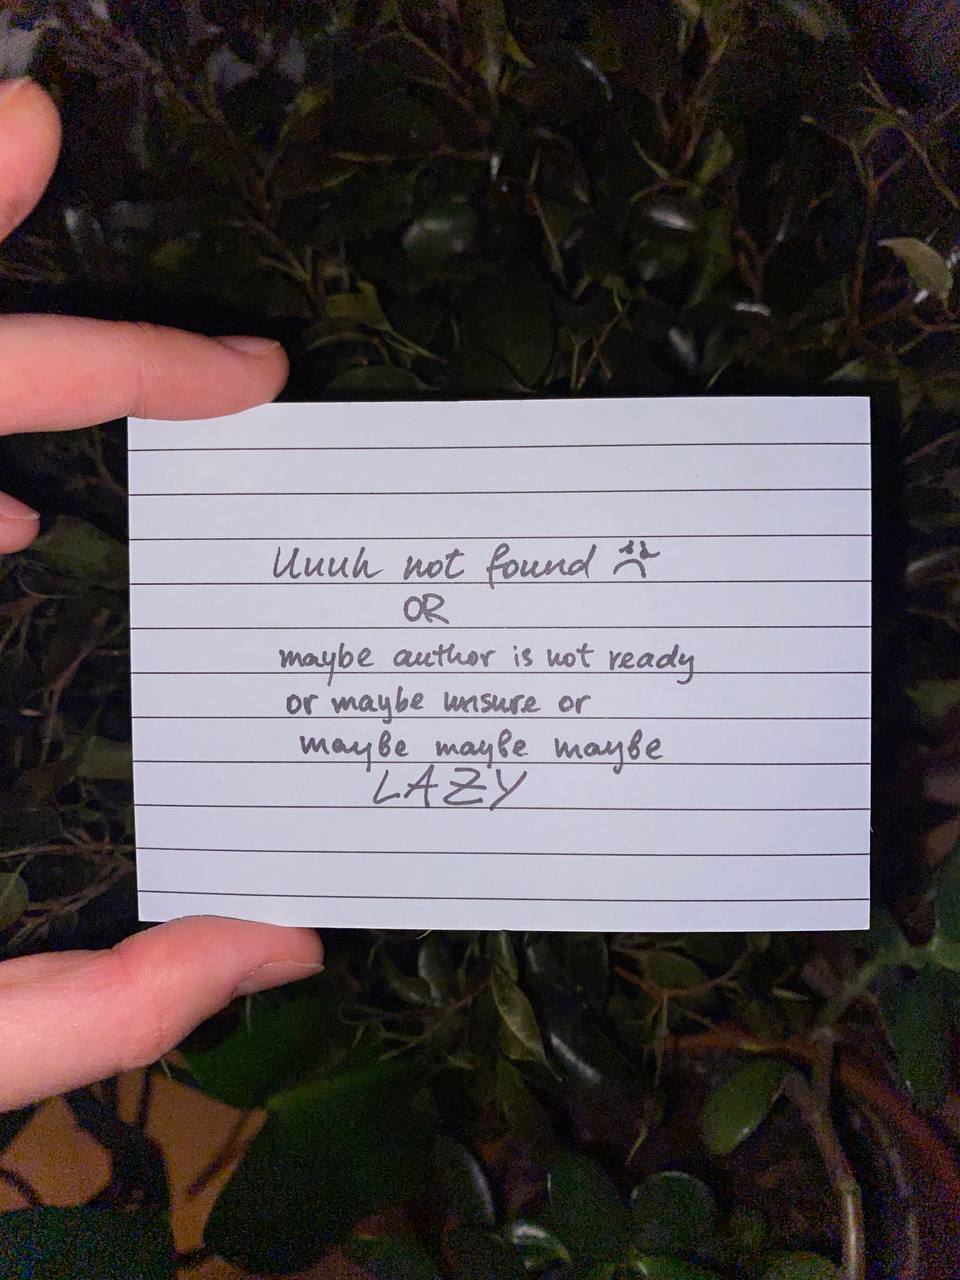 Uuuh not found
OR
maybe author is not ready
or maybe unsure or
maybe maybe maybe
LAZY